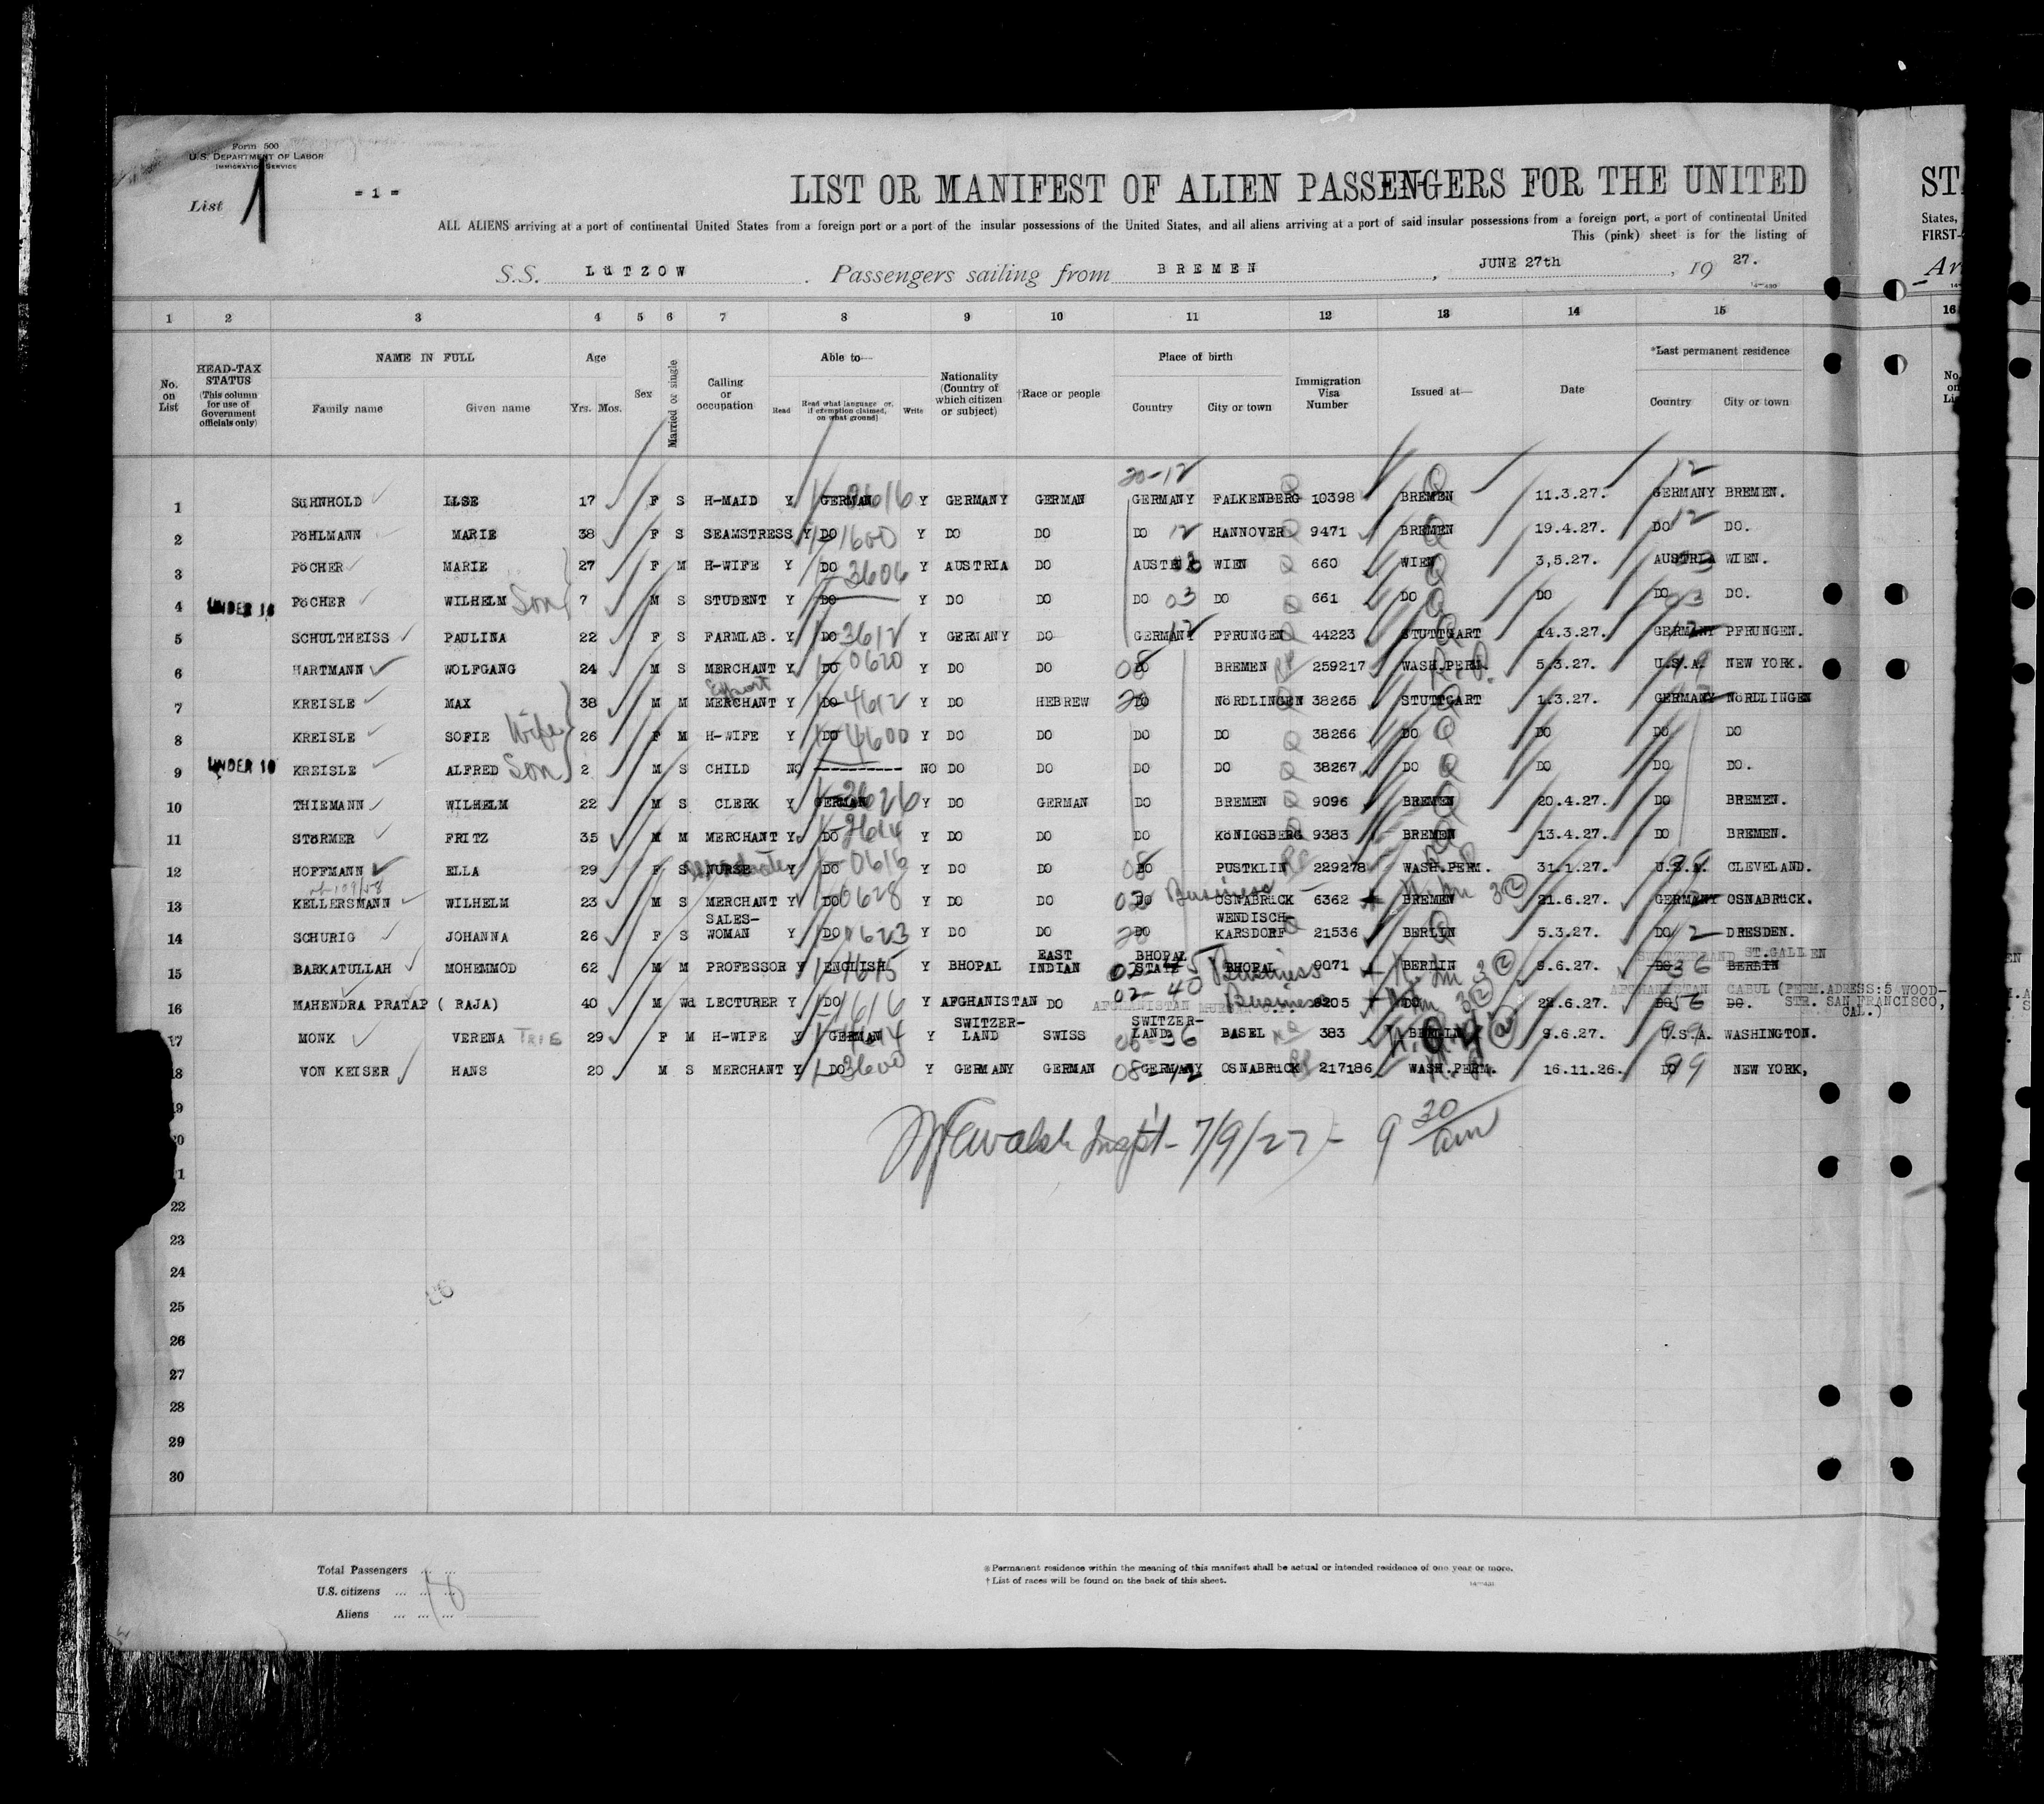 Form 500
U.S. DEPARTMENT OF LABOR
IMMIGRATION SERVICE
List 1 = 1 =
LIST OR MANIFEST OF ALIEN PASSENGERS FOR THE UNITED
ALL ALIENS arriving at a port of continental United States from a foreign port or a port of the insular possessions of the United States, and all aliens arriving at a port of said insular possessions from a foreign port, a port of continental United
This (pink) sheet is for the listing of
S.S. LüTZOW . Passengers sailing from BREMEN , JUNE 27th , 19 27.
STA
States,
FIRST-
Ar
1 2 3 4 5 6 7 8 9 10 11 12 13 14 15 16
No. on List
HEAD-TAX STATUS (This column for use of Government officials only)
NAME IN FULL
Family name Given name
Age
Yrs. Mos.
Sex
Married or single
Calling or occupation
Able to—
Read Read what language or, if exemption claimed, on what ground] Write
Nationality (Country of which citizen or subject)
†Race or people
Place of birth
Country City or town
Immigration Visa Number
Issued at—
Date
*Last permanent residence
Country City or town
20-12 12
1 SüHNHOLD ILSE 17 F S H-MAID Y GERMAN 3616 Y GERMANY GERMAN GERMANY FALKENBERG Q 10398 BREMEN Q 11.3.27. GERMANY BREMEN.
2 PöHLMANN MARIE 38 F S SEAMSTRESS Y DO 1600 Y DO DO DO 12 HANNOVER Q 9471 BREMEN Q 19.4.27. DO 12 DO.
3 PöCHER MARIE 27 F M H-WIFE Y DO 3606 Y AUSTRIA DO AUSTRIA 03 WIEN Q 660 WIEN Q 3,5.27. AUSTRIA 03 WIEN.
4 UNDER 16 PöCHER WILHELM Son 7 M S STUDENT Y DO Y DO DO DO 03 DO Q 661 DO Q DO DO 03 DO.
5 SCHULTHEISS PAULINA 22 F S FARMLAB. Y DO 3612 Y GERMANY DO GERMANY 12 PFRUNGEN Q 44223 STUTTGART Q 14.3.27. GERMANY 12 PFRUNGEN.
6 HARTMANN WOLFGANG 24 M S MERCHANT Y DO 0620 Y DO DO 08 DO BREMEN RP 259217 WASH.PERM. R.P. 5.3.27. U.S.A. 99 NEW YORK.
Export
7 KREISLE MAX 38 M M MERCHANT Y DO 4612 Y DO HEBREW 20 DO NöRDLINGEN 38265 STUTTGART Q 1.3.27. GERMANY NöRDLINGEN
8 KREISLE SOFIE Wife 26 F M H-WIFE Y DO 4600 Y DO DO DO DO Q 38266 DO Q DO DO DO
9 UNDER 16 KREISLE ALFRED Son 2 M S CHILD NO ---------- NO DO DO DO DO Q 38267 DO Q DO DO DO.
10 THIEMANN WILHELM 22 M S CLERK Y GERMAN 3626 Y DO GERMAN DO BREMEN Q 9096 BREMEN Q 20.4.27. DO BREMEN.
11 STöRMER FRITZ 35 M M MERCHANT Y DO 3614 Y DO DO DO KöNIGSBERG Q 9383 BREMEN Q 13.4.27. DO BREMEN.
12 HOFFMANN ELLA 29 F S NURSE Y DO 0616 Y DO DO 08 DO PUSTKLIN RP 229278 WASH.PERM. RP 31.1.27. U.S.A. 99 CLEVELAND.
13 KELLERSMANN WILHELM 23 M S MERCHANT Y DO 0628 Y DO DO 02 DO Business OSNABRüCK 6362 BREMEN 3 (2) 21.6.27. GERMANY OSNABRüCK.
14 SCHURIG JOHANNA 26 F S SALES- WOMAN Y DO 1623 Y DO DO 20 DO WENDISCH- KARSDORF Q 21536 BERLIN Q 5.3.27. DO 12 DRESDEN.
15 BARKATULLAH MOHEMMOD 62 M M PROFESSOR Y ENGLISH 1615 Y BHOPAL EAST INDIAN BHOPAL STATE BHOPAL Business 9071 BERLIN 3 (2) 9.6.27. SWITZERLAND DO 36 ST.GALLEN BERLIN
16 MAHENDRA PRATAP ( RAJA) 40 M Wd LECTURER Y DO 1616 Y AFGHANISTAN DO 02-40 AFGHANISTAN Business 9205 DO 3 (2) 22.6.27. AFGHANISTAN DO 56 CABUL (PERM.ADRESS:5 WOOD- DO. STR. SAN FRANCISCO, CAL.)
17 MONK VERENA 29 F M H-WIFE Y GERMAN Y SWITZER- LAND SWISS SWITZER- LAND. 36 BASEL 383 BERLIN 9.6.27. U.S.A. 99 WASHINGTON.
18 VON KEISER HANS 20 M S MERCHANT Y DO 3600 Y GERMANY GERMAN 08-12 GERMANY OSNABRüCK RP 217186 WASH.PERM. 16.11.26. DO 99 NEW YORK,
19
20
21
Insp't - 7/9/27 - 9 30/am
22
23
24
25
26
27
28
29
30
Total Passengers
U.S. citizens
Aliens
*Permanent residence within the meaning of this manifest shall be actual or intended residence of one year or more.
†List of races will be found on the back of this sheet.